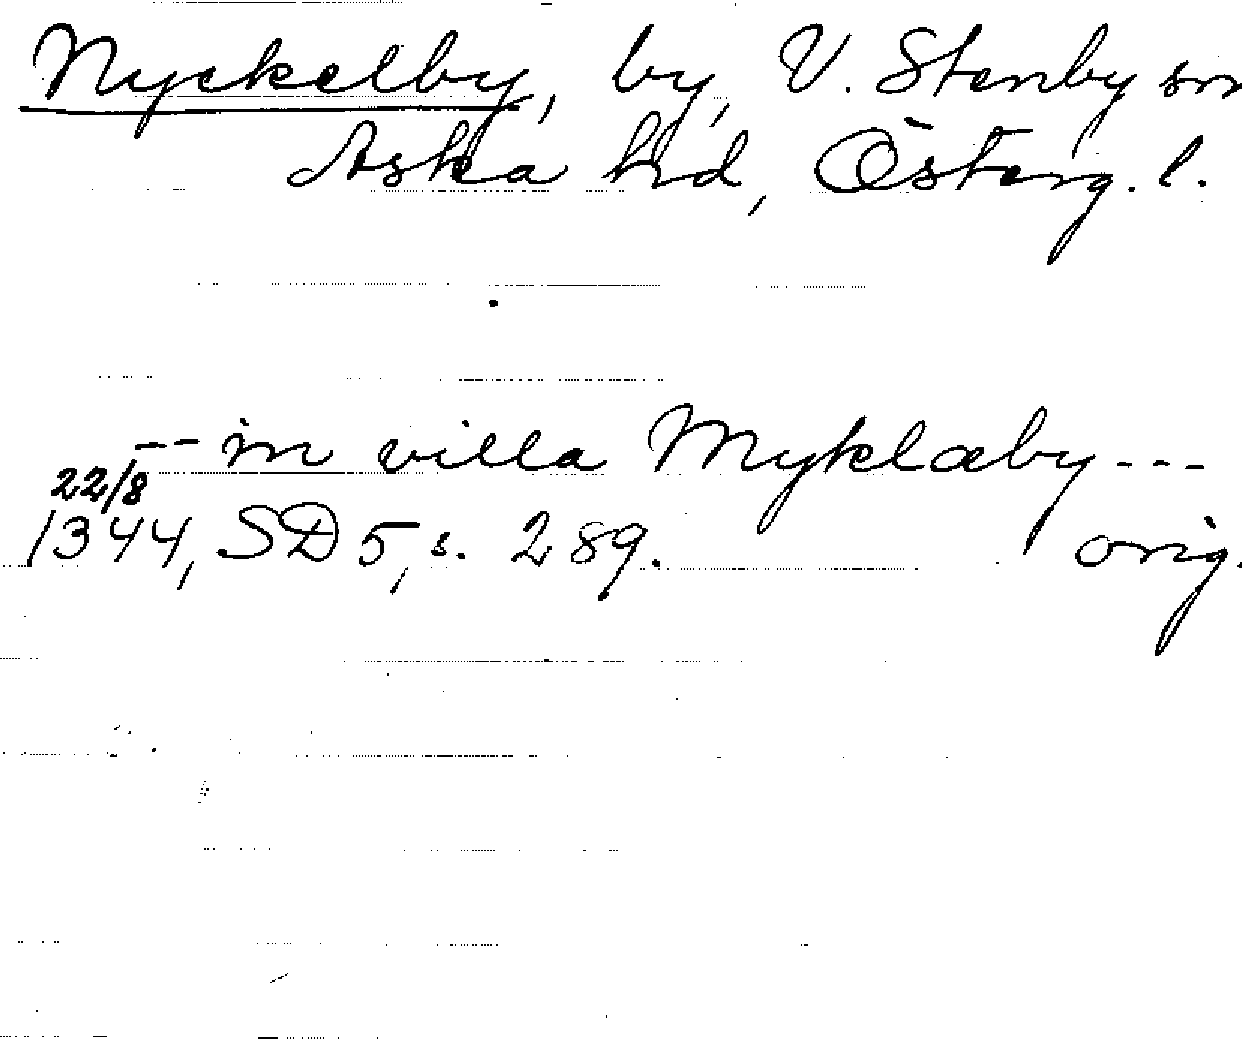 Nyckelby, by, V. Stenby sn
Aska hd, Österg. l.
-- in villa Myklæby ---
22/8
1344, SD 5, s. 289. orig.